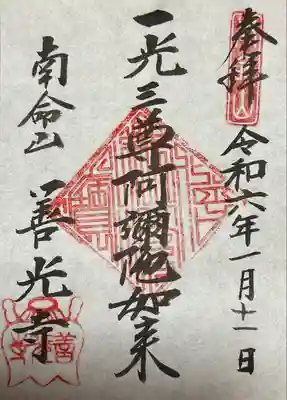 奉拝
令和六年一月十一日
一光三尊阿彌陀如来
南命山
善光寺